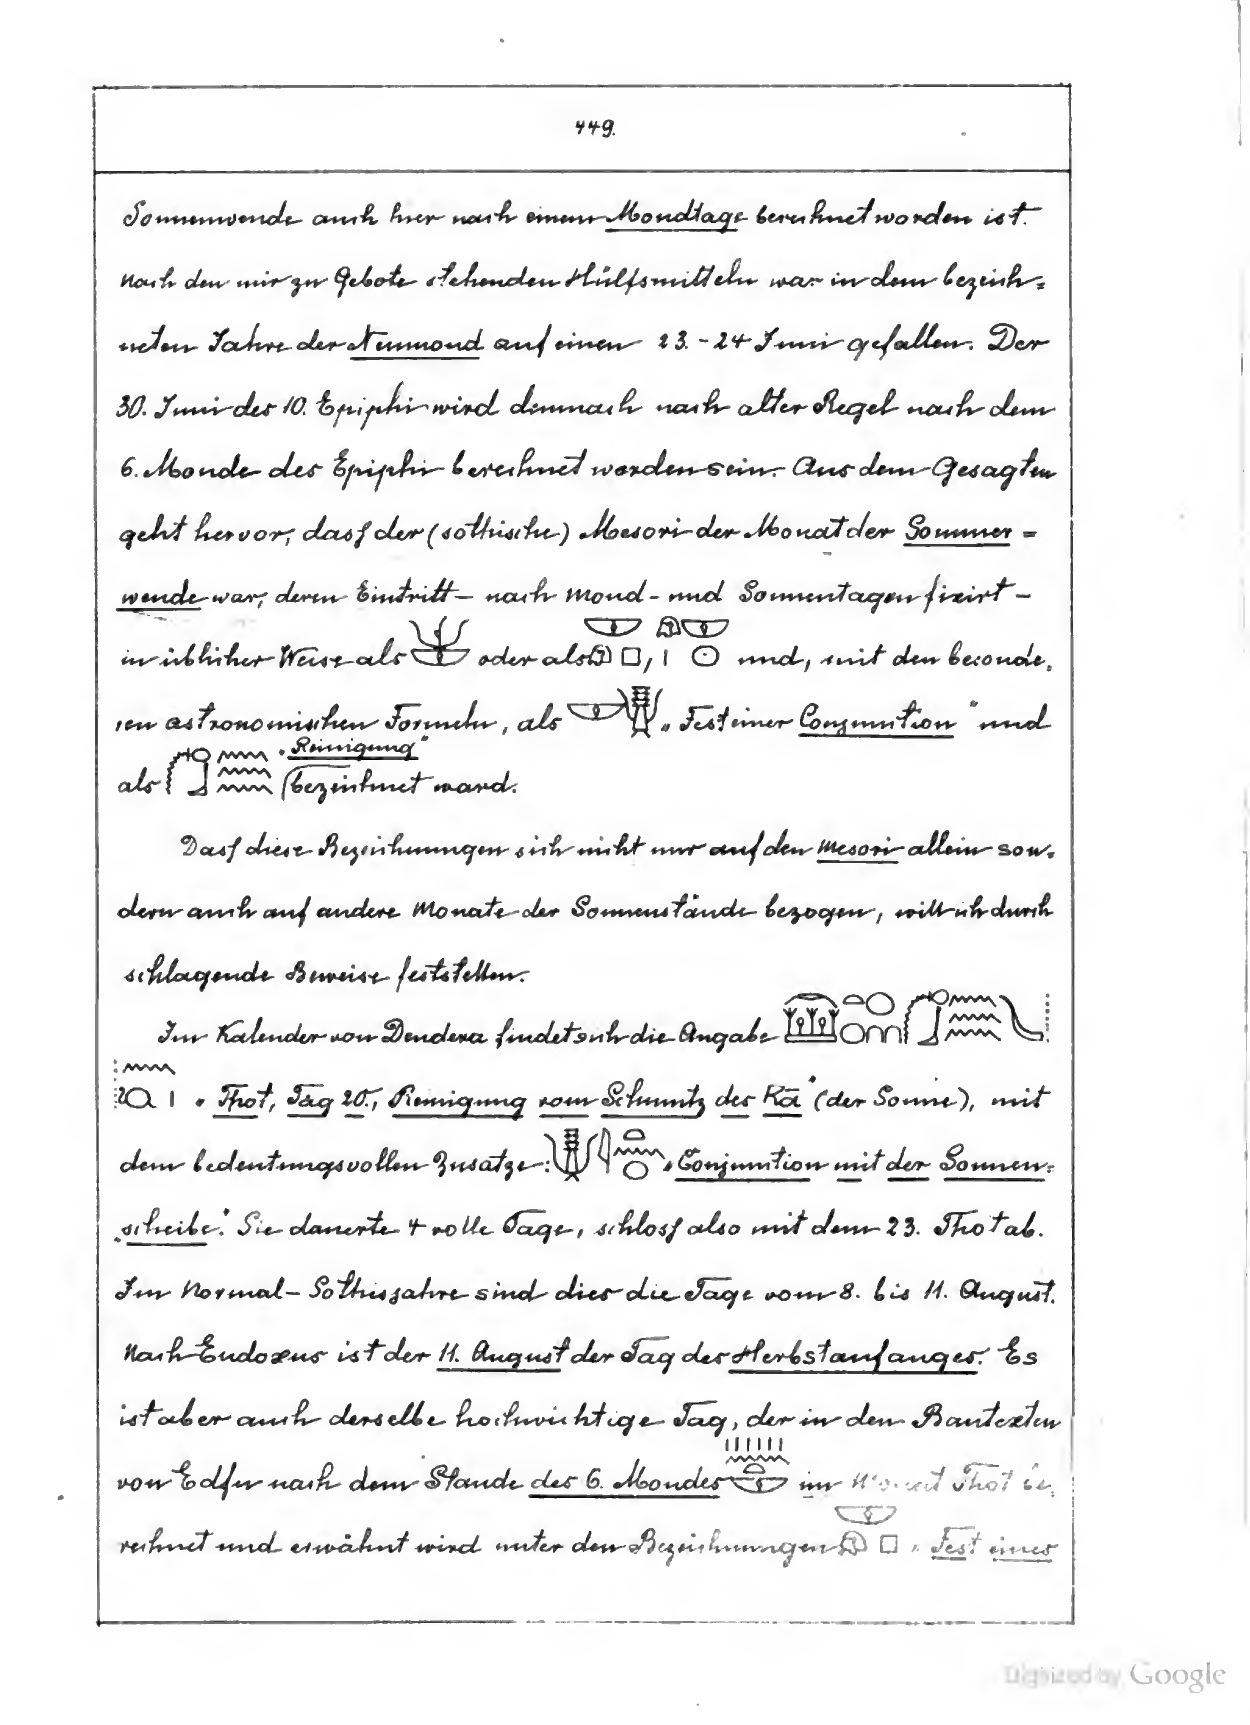 449.
Sonnenwende auch hier nach einem Mondtage berechnet worden ist.
Nach den mir zu Gebote stehenden Hülfsmitteln war in dem bezeich=
neten Jahre der Neumond auf einen 23. - 24 Juni gefallen. Der
30. Juni des 10. Epiphi wird demnach nach alter Regel nach dem
6. Monde des Epiphi berechnet worden sein. Aus dem Gesagten
geht hervor, dass der (sothische) Mesori der Monat der Sommer=
wende war, deren Eintritt – nach Mond- und Sonnentagen fixirt –
in üblicher Weise als oder als , und, mit den besonde,
ren astronomischen Formeln, als „Fest einer Conjunction" und
als „Reinigung" bezeichnet ward.
Dass diese Bezeichnungen sich nicht nur auf den Mesori allein son,
dern auch auf andere Monate der Sonnenstände bezogen, will ich durch
schlagende Beweise feststellen.
Im Kalender von Dendera findet sich die Angabe
„Thot, Tag 20., Reinigung vom Schmutz des Rā" (der Sonne), mit
dem bedeutungsvollen Zusatze: „Conjunction mit der Sonnen=
scheibe". Sie dauerte 4 volle Tage, schloss also mit dem 23. Thot ab.
Im Normal-Sothisjahre sind dies die Tage vom 8. bis 11. August.
Nach Eudoxus ist der 11. August der Tag des Herbstanfanges. Es
ist aber auch derselbe hochwichtige Tag, der in den Bautexten
von Edfu nach dem Stande des 6. Mondes im Monat Thot be,
rechnet und erwähnt wird unter den Bezeichnungen „Fest eines
Digitized by Google